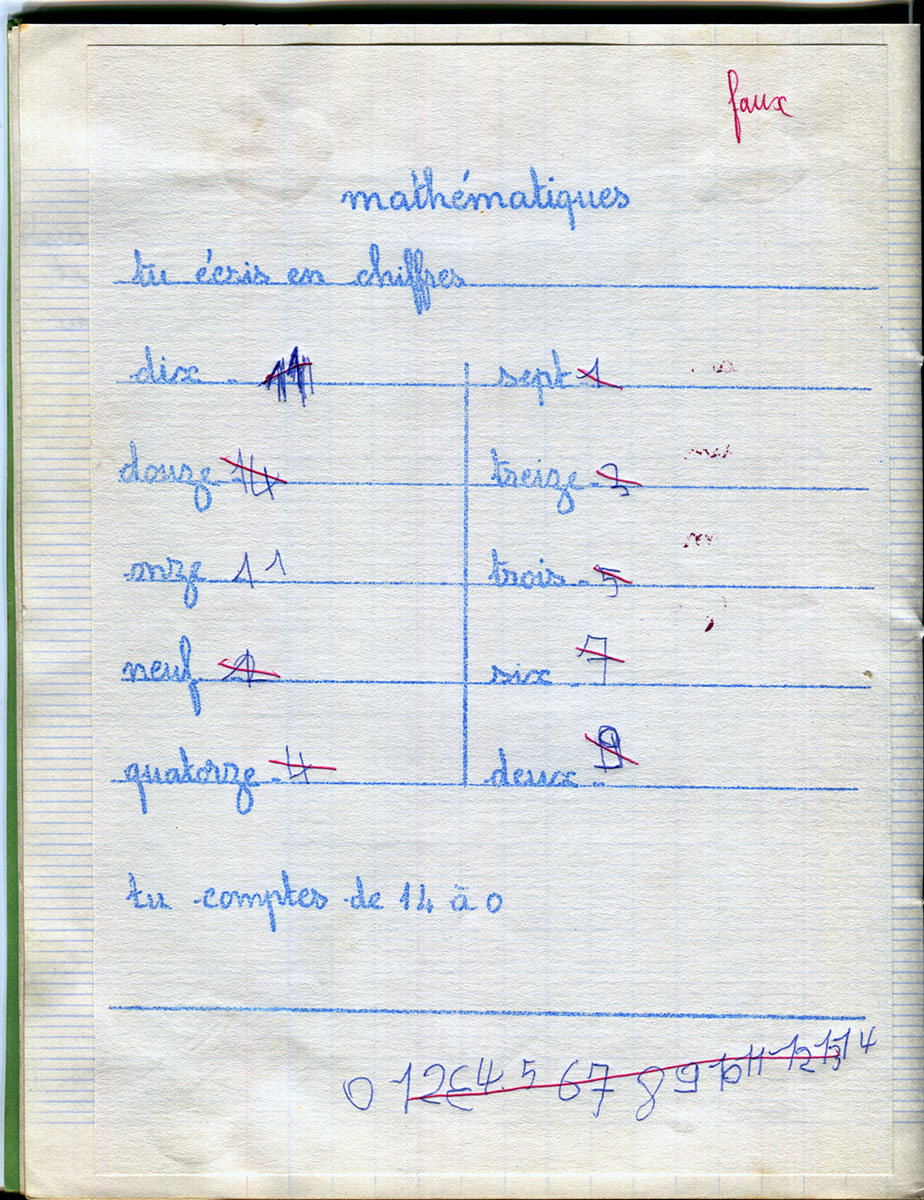 faux
mathématiques
tu écris en chiffres
dix 11
sept 1
douze 14
treize 3
onze 11
trois 5
neuf
six 7
quatorze 4
deux 9
tu comptes de 14 à 0
0 1 2 3 4 5 6 7 8 9 10 11 12 13 14